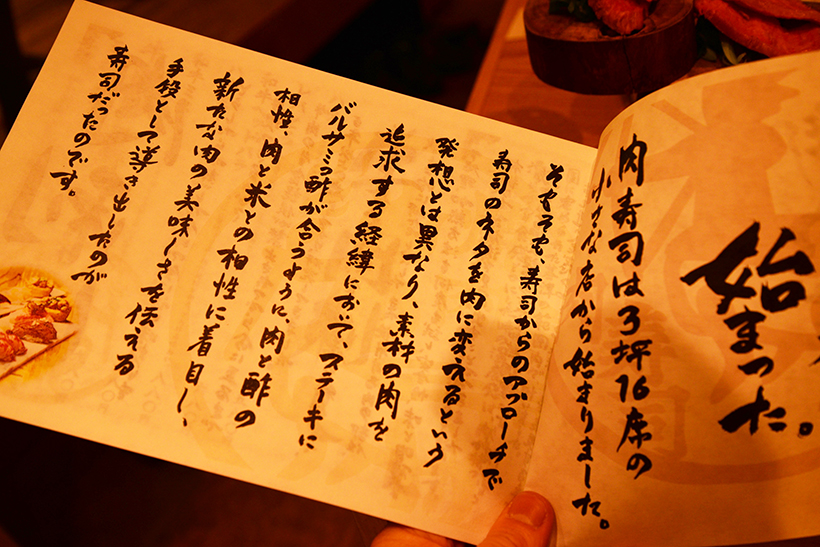 始まった。
肉寿司は3坪16席の
小さな店から始まりました。
そもそも、寿司からのアプローチで
寿司のネタを肉に変えるという
発想とは異なり、素材の肉を
追求する経緯において、ステーキに
バルサミコ酢が合うように、肉と酢の
相性、肉と米との相性に着目し、
新たな肉の美味しさを伝える
手段として導き出したのが
寿司だったのです。